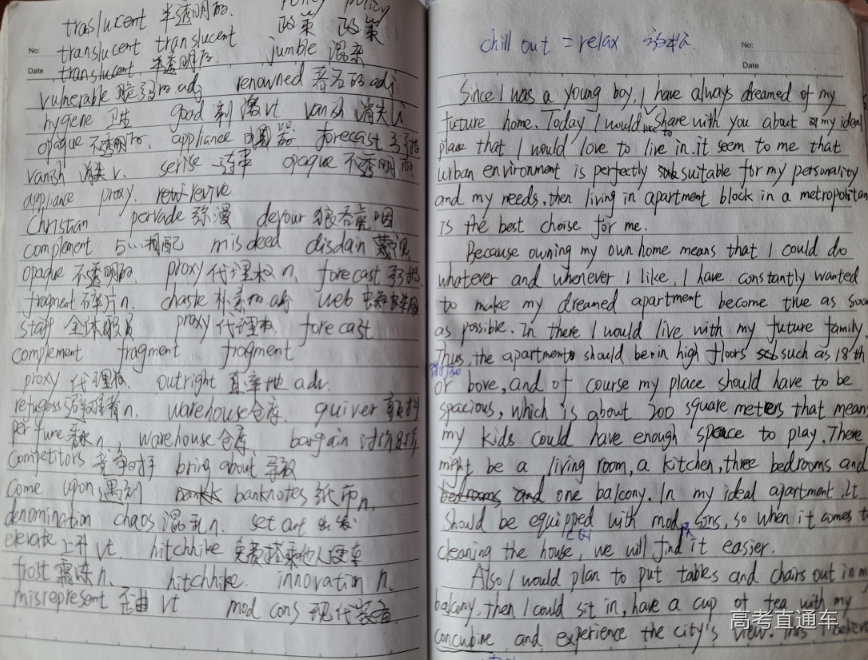 policy policy
traslucent 半透明的. 政策 政策
translucent translucent
translucent 半透明的. jumble 混杂
vulnerable 脆弱的 adj renowned 著名的 adj
hygiene 卫生 good 刺激 vt vanish 消失 i
opaque 不透明的. appliance 电器 forecast
vanish 消失 v. serise 一连串 opaque 不透明的
appliance proxy. revive
Christian pervade 弥漫 devour 狼吞虎咽
complement 与…相配 misdeed disdain 蔑视
opaque 不透明的 proxy 代理权 n. forecast
fragment 碎片 n. chaste 朴素的 adj web
staff 全体职员 proxy 代理权 forecast
complement fragment fragment
proxy 代理权. outright 直率地 adv.
n. warehouse 仓库. quiver 颤抖
perfume 香水 n, warehouse 仓库 bargain 讨价还价
competitors 竞争对手 bring about 导致
come upon 遇到 banknotes 纸币 n.
denomination chaos 混乱 n. set out 出发
elevate 上升 vt hitchhike 免费搭乘他人便车
frost 霜冻 n. hitchhike. innovation n.
misrepresent 歪曲 vt mod cons 现代设备.
No:
Date
chill out = relax 放松
No:
Date
Since I was a young boy, I have always dreamed of my
future home. Today I would share with you about my ideal
place that I would love to live in. it seem to me that
urban environment is perfectly suitable for my personality
and my needs, then living in apartment block in a metropolitan
is the best choise for me.
Because owning my own home means that I could do
whatever and whenever I like, I have constantly wanted
to make my dreamed apartment become true as soon
as possible. In there I would live with my future family.
Thus, the apartment should be in high floors such as 18th
or bove, and of course my place should have to be
spacious, which is about 200 square meters that mean
my kids could have enough space to play. There
might be a living room, a kitchen, three bedrooms and
bedrooms and one balcony. In my ideal apartment. It
should be equipped with mod cons, so when it comes to
cleaning the house, we will find it easier.
Also I would plan to put tables and chairs out in my
balcony, then I could sit in, have a cup of tea with my
concubine and experience the city's view. This I believe
高考直通车